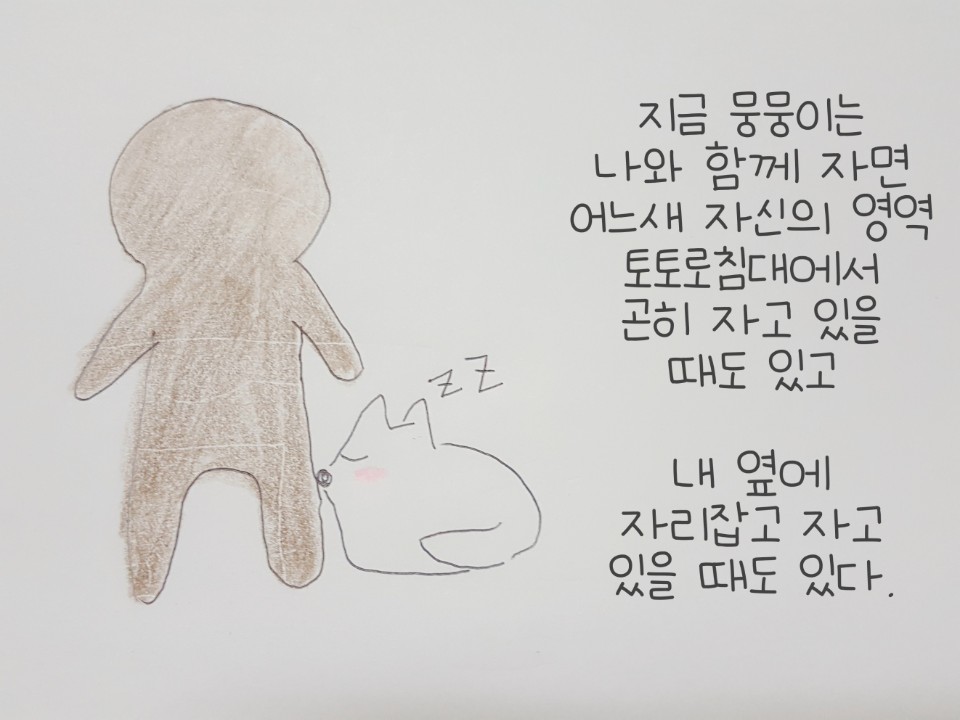 지금 뭉뭉이는
나와 함께 자면
어느새 자신의 영역
토토로침대에서
곤히 자고 있을
때도 있고
내 옆에
자리잡고 자고
있을 때도 있다.
zz